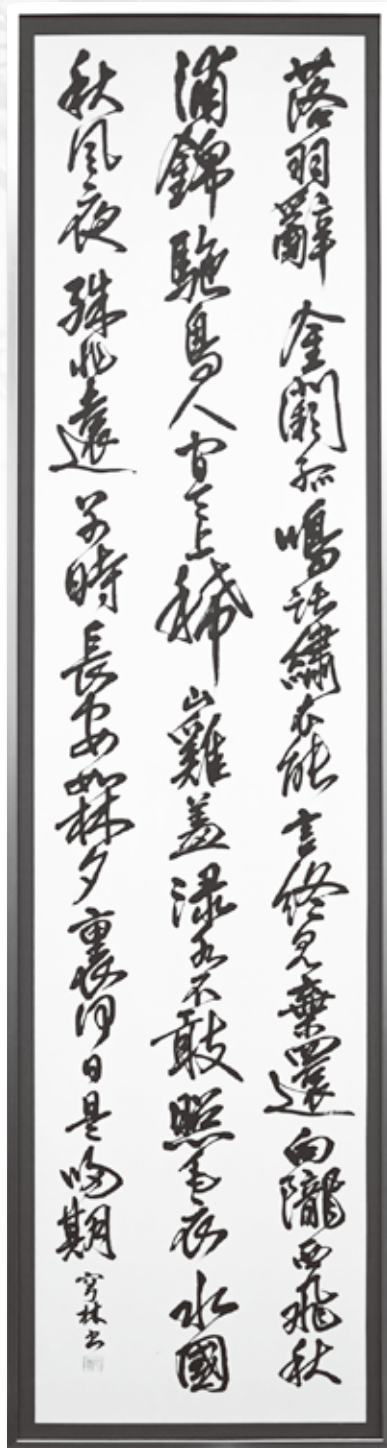 落羽辭金闕孤鳴託繡衣能言終見棄還向隴西飛秋
浦錦駝鳥人間天上稀山雞羞淥水不敢照毛衣水國
秋風夜殊非遠別時長安如梦裏何日是歸期